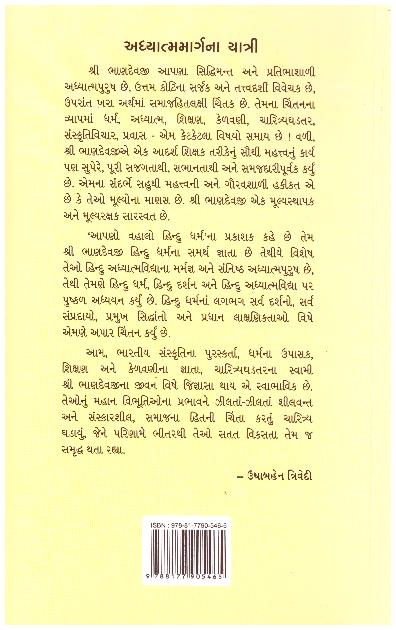 અધ્યાત્મમાર્ગના યાત્રી
શ્રી ભાણદેવજી આપણા સિદ્ધિમન્ત અને પ્રતિભાશાળી
અધ્યાત્મપુરુષ છે. ઉત્તમ કોટિના સર્જક અને તત્ત્વદર્શી વિવેચક છે,
ઉપરાંત ખરા અર્થમાં સમાજહિતલક્ષી ચિંતક છે. તેમના ચિંતનના
વ્યાપમાં ધર્મ, અધ્યાત્મ, શિક્ષણ, કેળવણી, ચારિત્ર્યઘડતર,
સંસ્કૃતિવિચાર, પ્રવાસ - એમ કેટકેટલા વિષયો સમાય છે ! વળી,
શ્રી ભાણદેવજીએ એક આદર્શ શિક્ષક તરીકેનું સૌથી મહત્ત્વનું કાર્ય
પણ સુપેરે, પૂરી સજગતાથી, સભાનતાથી અને સમજદારીપૂર્વક કર્યું
છે. એમના સંદર્ભે સહુથી મહત્ત્વની અને ગૌરવશાળી હકીકત એ
છે કે તેઓ મૂલ્યોના માણસ છે. શ્રી ભાણદેવજી એક મૂલ્યસ્થાપક
અને મૂલ્યરક્ષક સારસ્વત છે.
'આપણો વહાલો હિન્દુ ધર્મ'ના પ્રકાશક કહે છે તેમ
શ્રી ભાણદેવજી હિન્દુ ધર્મના સમર્થ જ્ઞાતા છે તેથીયે વિશેષ
તેઓ હિન્દુ અધ્યાત્મવિદ્યાના મર્મજ્ઞ અને સંનિષ્ઠ અધ્યાત્મપુરુષ છે,
તેથી તેમણે હિન્દુ ધર્મ, હિન્દુ દર્શન અને હિન્દુ અધ્યાત્મવિદ્યા પર
પુષ્કળ અધ્યયન કર્યું છે. હિન્દુ ધર્મનાં લગભગ સર્વ દર્શનો, સર્વ
સંપ્રદાયો, પ્રમુખ સિદ્ધાંતો અને પ્રધાન લાક્ષણિકતાઓ વિષે
એમણે અપાર ચિંતન કર્યું છે.
આમ, ભારતીય સંસ્કૃતિના પુરસ્કર્તા, ધર્મના ઉપાસક,
શિક્ષણ અને કેળવણીના જ્ઞાતા, ચારિત્ર્યઘડતરના સ્વામી
શ્રી ભાણદેવજીના જીવન વિષે જિજ્ઞાસા થાય એ સ્વાભાવિક છે.
તેઓનું મહાન વિભૂતિઓના પ્રભાવને ઝીલતાં-ઝીલતાં શીલવન્ત
અને સંસ્કારશીલ, સમાજના હિતની ચિંતા કરતું ચારિત્ર્ય
ઘડાયું, જેને પરિણામે ભીતરથી તેઓ સતત વિકસતા તેમ જ
સમૃદ્ધ થતા રહ્યા.
– ઉષાબહેન ત્રિવેદી
ISBN : 978-81-7790-546-5
9 788177 905465